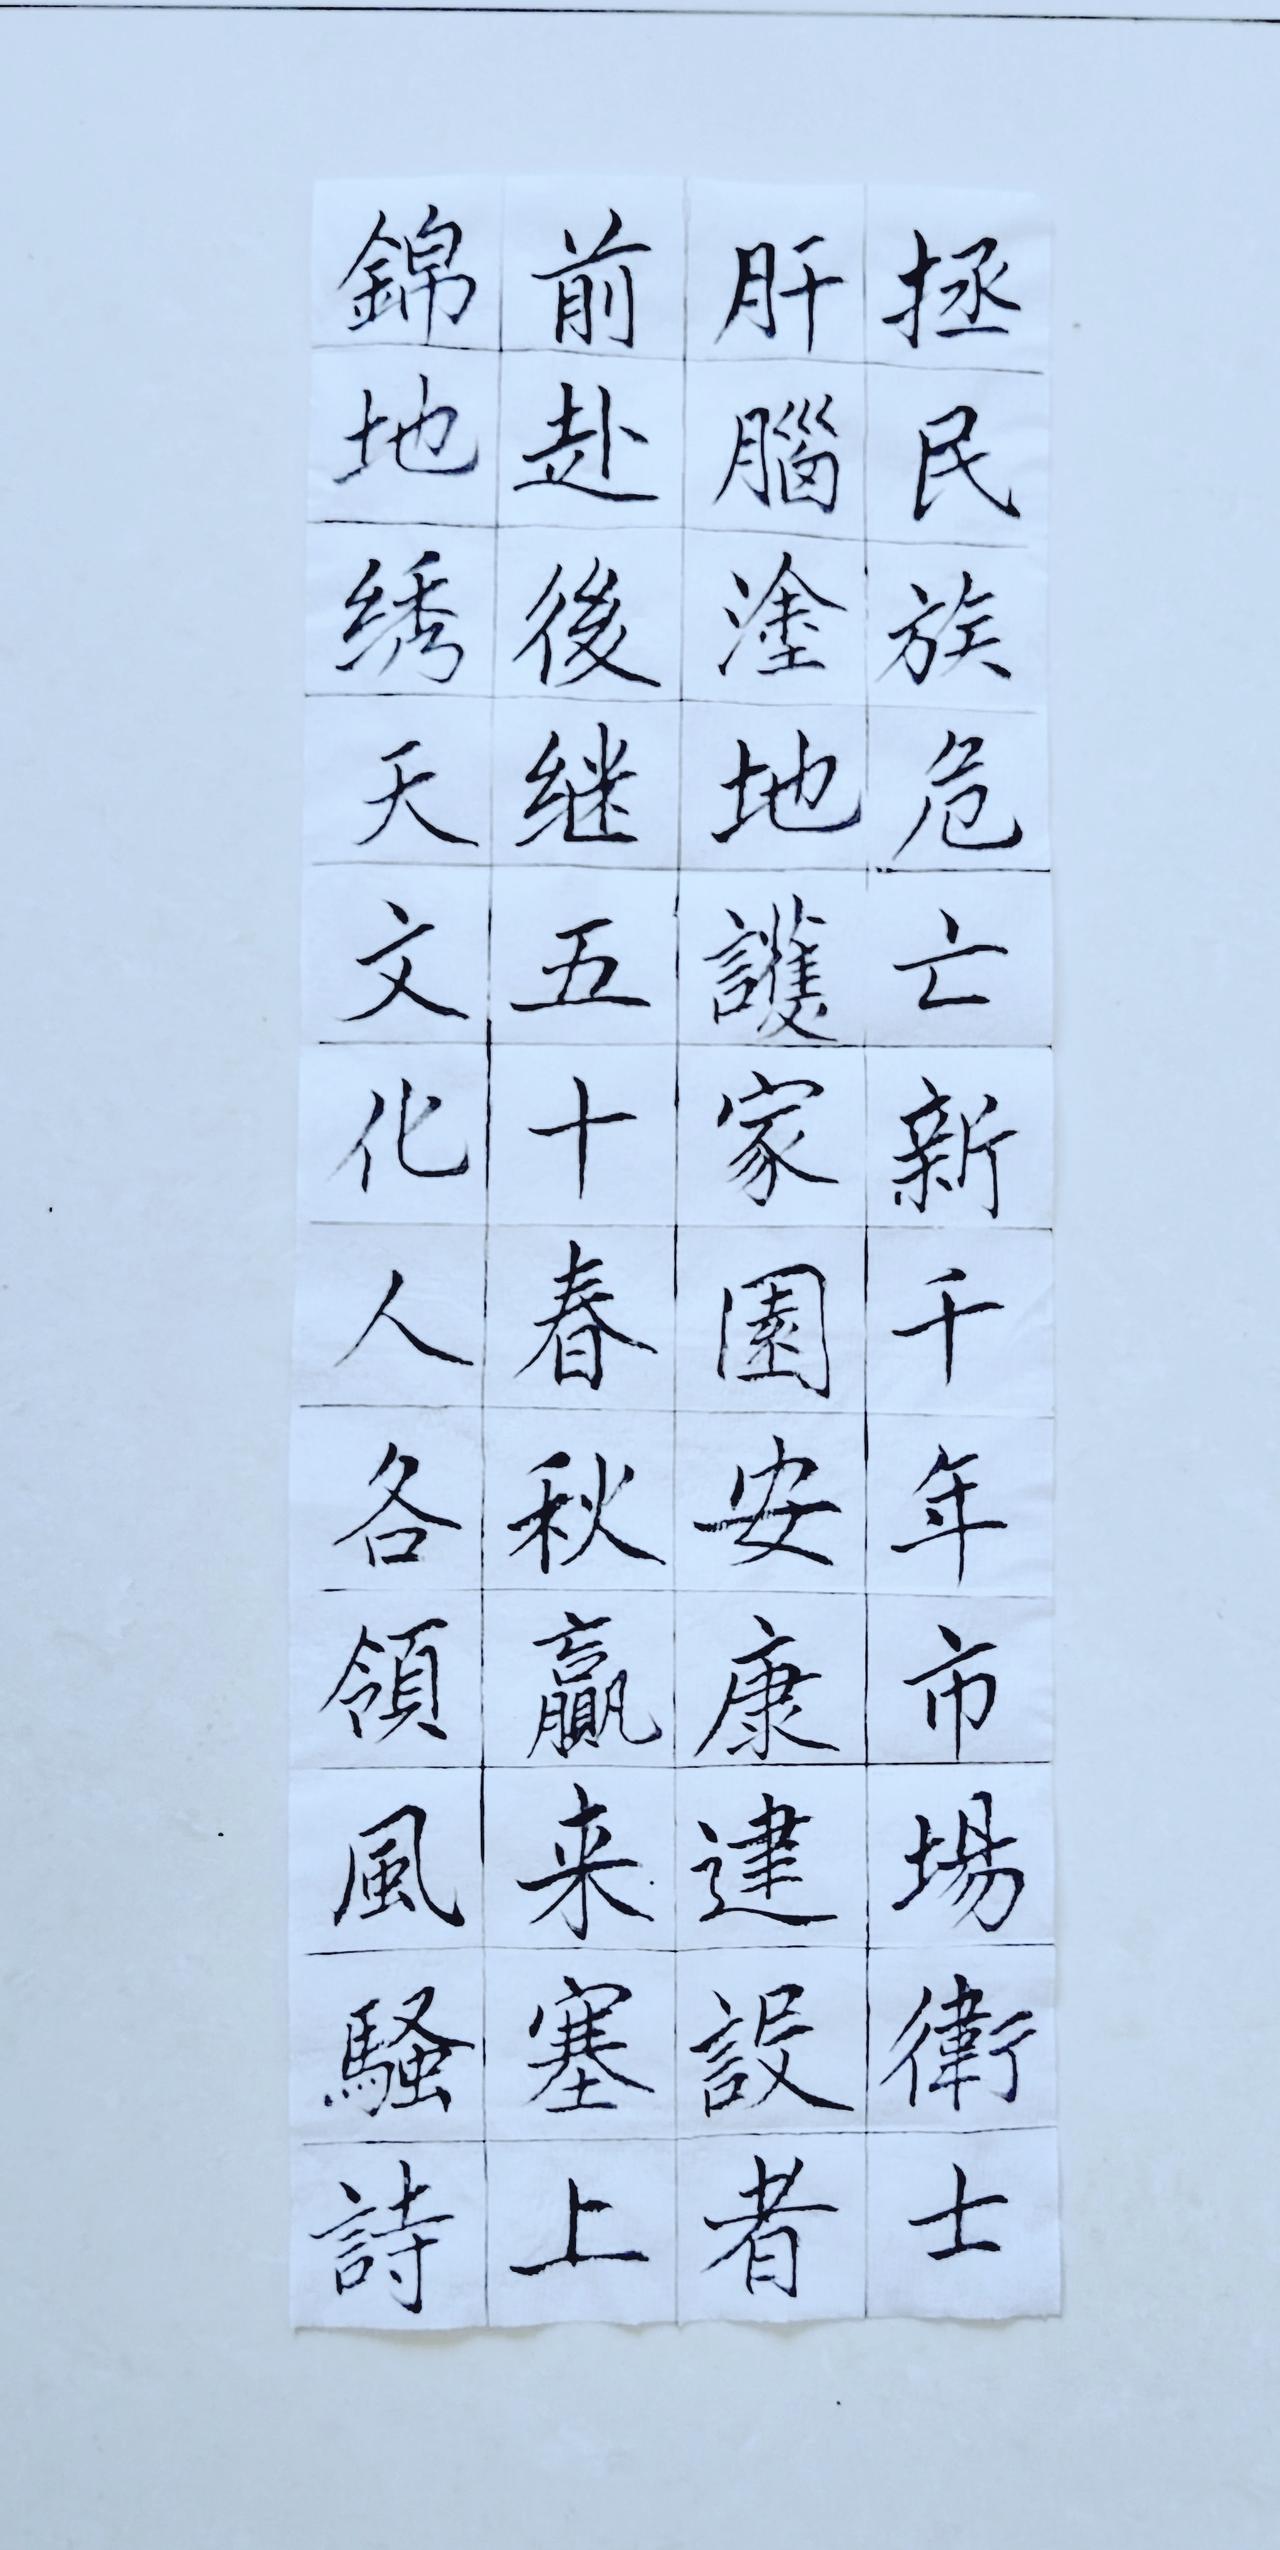 拯民族危亡新千年市場衛士
肝腦塗地護家園安康建設者
前赴後继五十春秋贏来塞上
錦地绣天文化人各領風騷詩